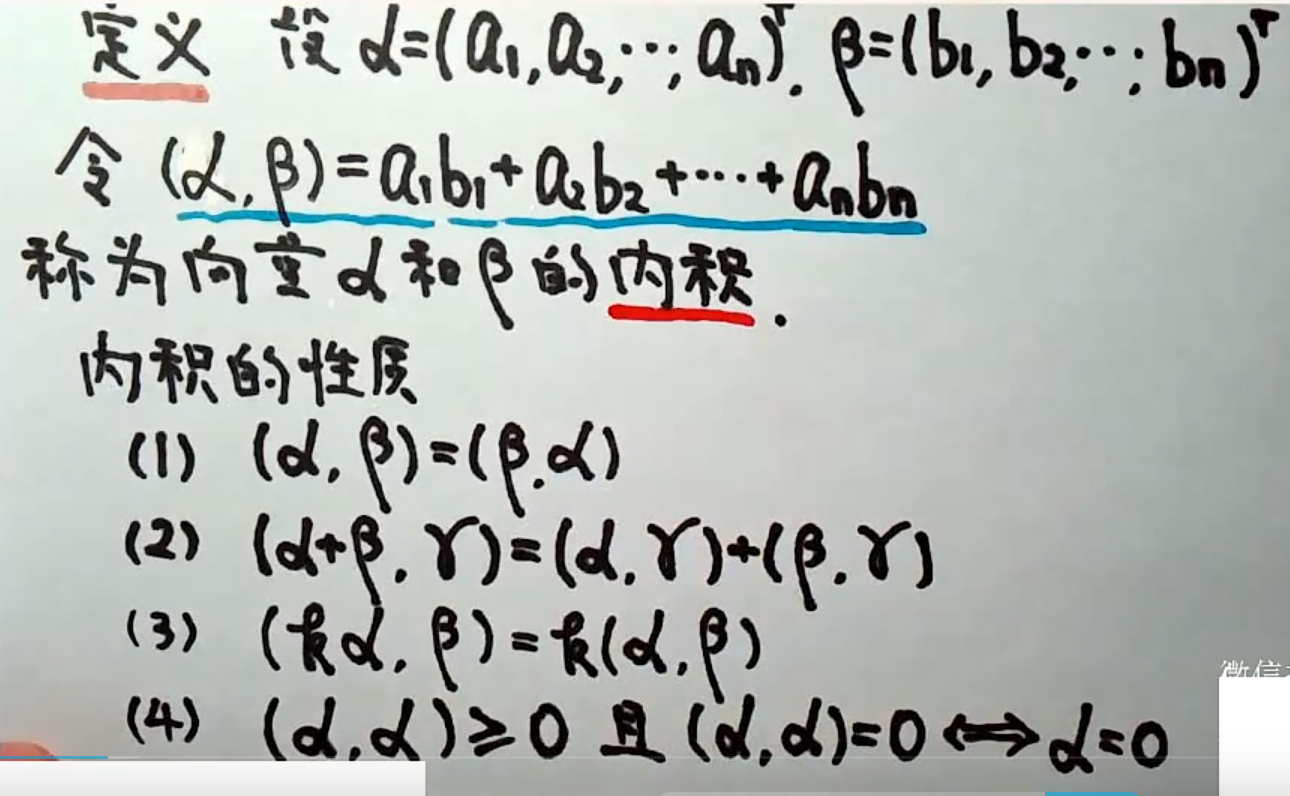 定义 设 α=(a₁,a₂,…,aₙ)ᵀ. β=(b₁,b₂,…,bₙ)ᵀ
令 (α,β)=a₁b₁+a₂b₂+…+aₙbₙ
称为向量α和β的内积.
内积的性质
(1) (α,β)=(β,α)
(2) (α+β,γ)=(α,γ)+(β,γ)
(3) (kα,β)=k(α,β)
(4) (α,α)≥0 且 (α,α)=0 ⟺ α=0
微信